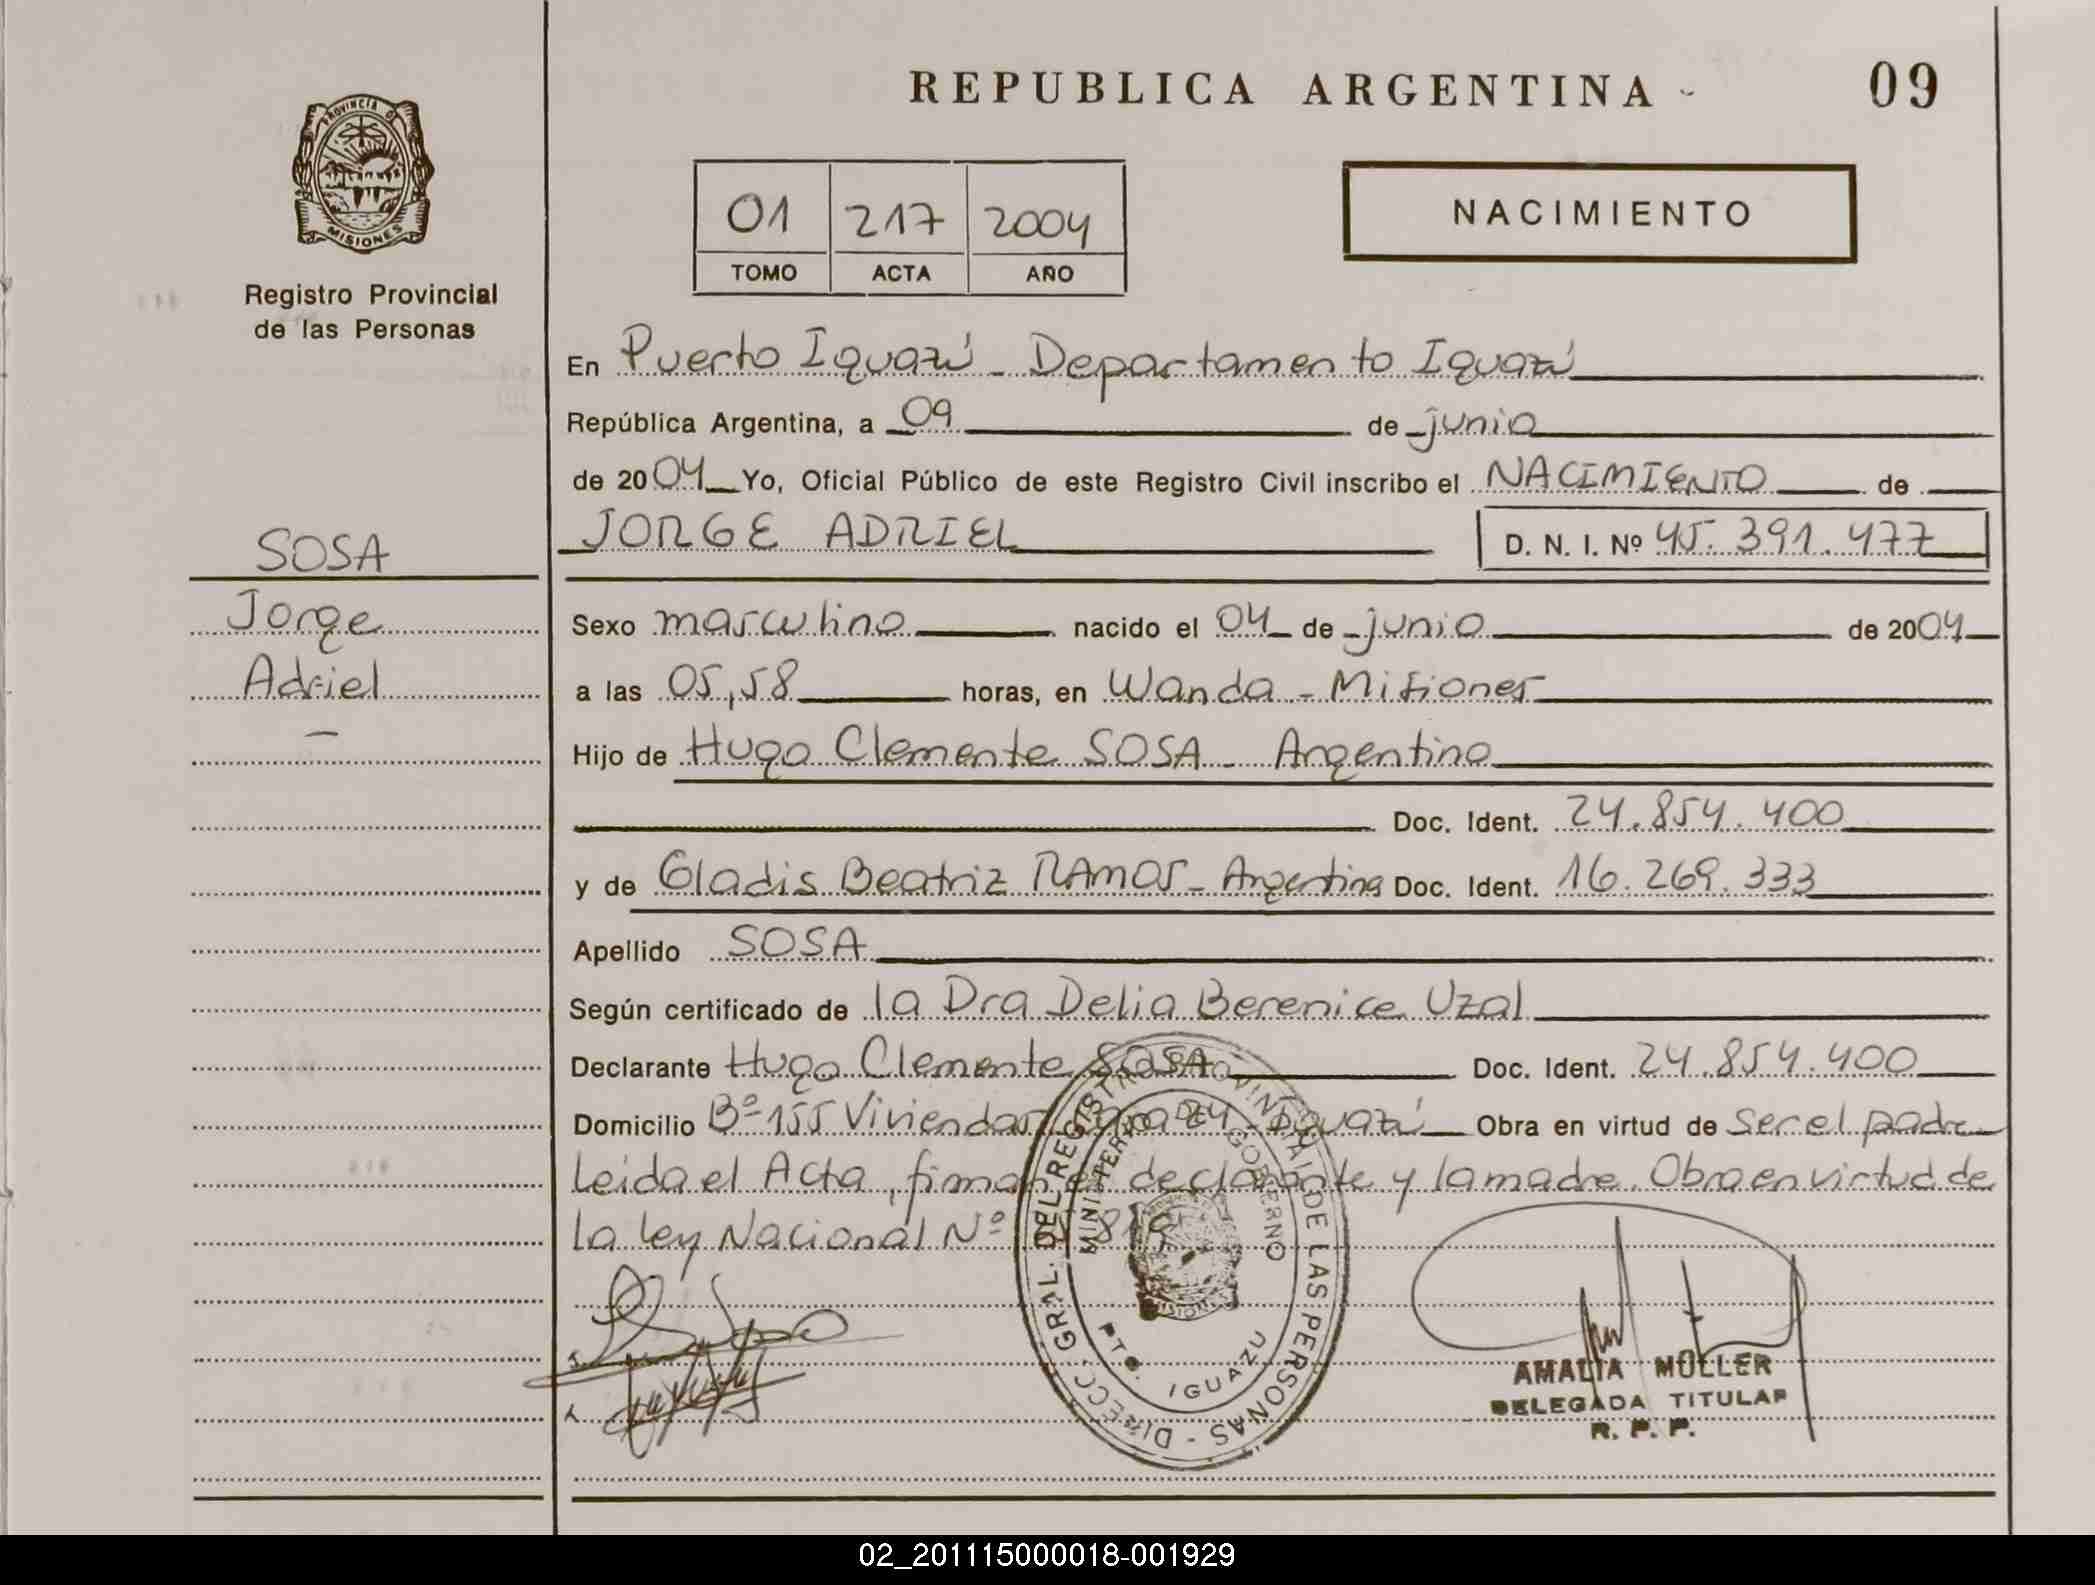 REPUBLICA ARGENTINA
09
PROVINCIA DE
MISIONES
Registro Provincial
de las Personas
01 217 2004
TOMO ACTA AÑO
NACIMIENTO
En Puerto Iguazú - Departamento Iguazú
República Argentina, a 09 de junio
de 2004 Yo, Oficial Público de este Registro Civil inscribo el NACIMIENTO de
JORGE ADRIEL
D. N. I. Nº 45.391.477
SOSA
Jorge
Adriel
Sexo masculino nacido el 04 de junio de 2004
a las 05,58 horas, en Wanda - Misiones
Hijo de Hugo Clemente SOSA - Argentino
Doc. Ident. 24.854.400
y de Gladis Beatriz RAMOS - Argentina Doc. Ident. 16.269.333
Apellido SOSA
Según certificado de la Dra Delia Berenice Uzal
Declarante Hugo Clemente SOSA Doc. Ident. 24.854.400
Domicilio Bº 155 Viviendas 24 - Iguazú Obra en virtud de ser el padre
Leida el Acta, firman el declarante y la madre. Obra en virtud de
la Ley Nacional Nº
DIRECC. GRAL. DEL REGISTRO PROVINCIAL DE LAS PERSONAS
MINISTERIO DE GOBIERNO
MISIONES
PTO. IGUAZU
AMALIA MÜLLER
DELEGADA TITULAR
R. P. P.
02_201115000018-001929